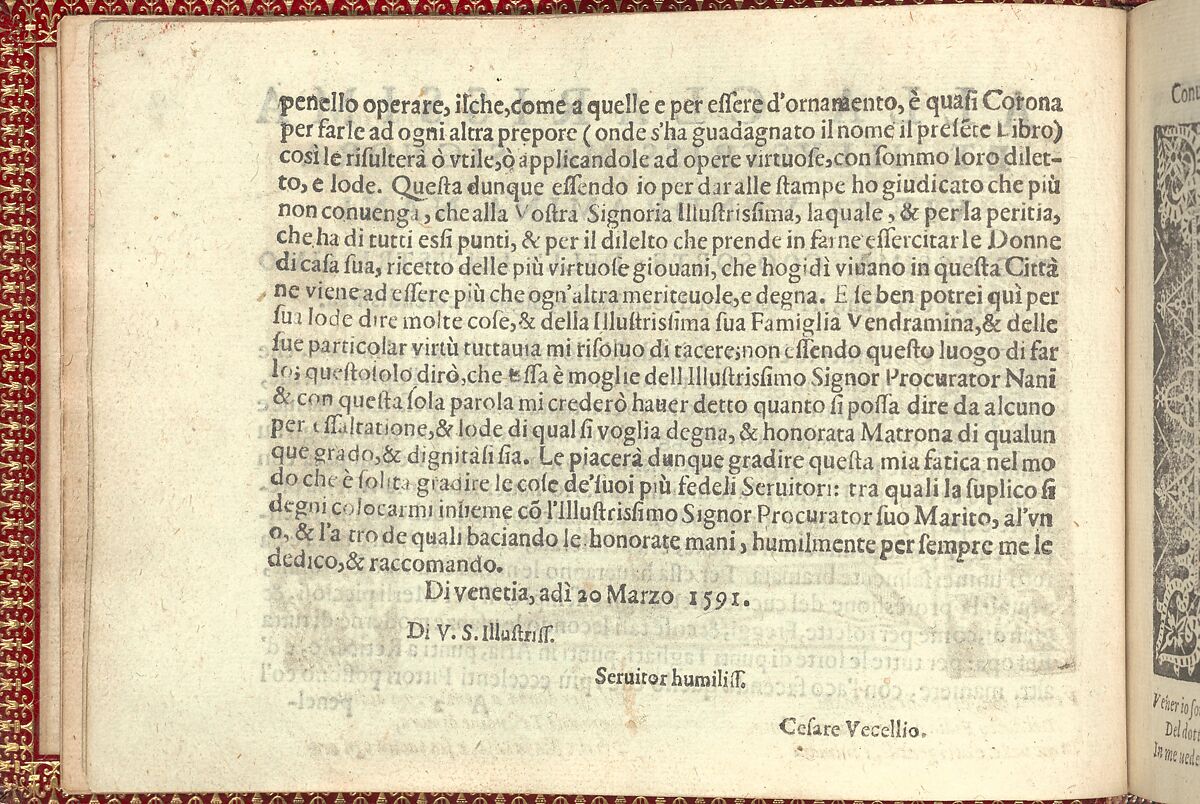 penello operare, ilche, come a quelle e per eſſere d'ornamento, è quaſi Corona
per farle ad ogni altra prepore (onde s'ha guadagnato il nome il preſẽte Libro)
così le riſulterà ò vtile, ò applicandole ad opere virtuoſe, con ſommo loro dilet-
to, e lode. Queſta dunque eſſendo io per dar alle ſtampe ho giudicato che più
non conuenga, che alla Voſtra Signoria Illuſtriſsima, laquale, & per la peritia,
che ha di tutti eſsi punti, & per il dilelto che prende in farne eſſercitar le Donne
di caſa ſua, ricetto delle più virtuoſe giouani, che hogidì viuano in queſta Città
ne viene ad eſſere più che ogn'altra meriteuole, e degna. E ſe ben potrei quì per
ſua lode dire molte coſe, & della Illuſtriſsima ſua Famiglia Vendramina, & delle
ſue particolar virtù tuttauia mi riſoluo di tacere; non eſſendo queſto luogo di far
lo; queſto ſolo dirò, che eſſa è moglie dell Illuſtriſsimo Signor Procurator Nani
& con queſta ſola parola mi crederò hauer detto quanto ſi poſſa dire da alcuno
per eſſaltatione, & lode di qual ſi voglia degna, & honorata Matrona di qualun
que grado, & dignità ſi ſia. Le piacerà dunque gradire queſta mia fatica nel mo
do che è ſolita gradire le coſe de'ſuoi più fedeli Seruitori: tra quali la ſuplico ſi
degni colocarmi inſieme cõ l'Illuſtriſsimo Signor Procurator ſuo Marito, al'vn
o, & l'a tro de quali baciando le honorate mani, humilmente per ſempre me le
dedico, & raccomando.
Di venetia, adì 20 Marzo 1591.
Di V. S. Illuſtriſſ.
Seruitor humiliſſ.
Ceſare Vecellio.
Del dott
In me uede